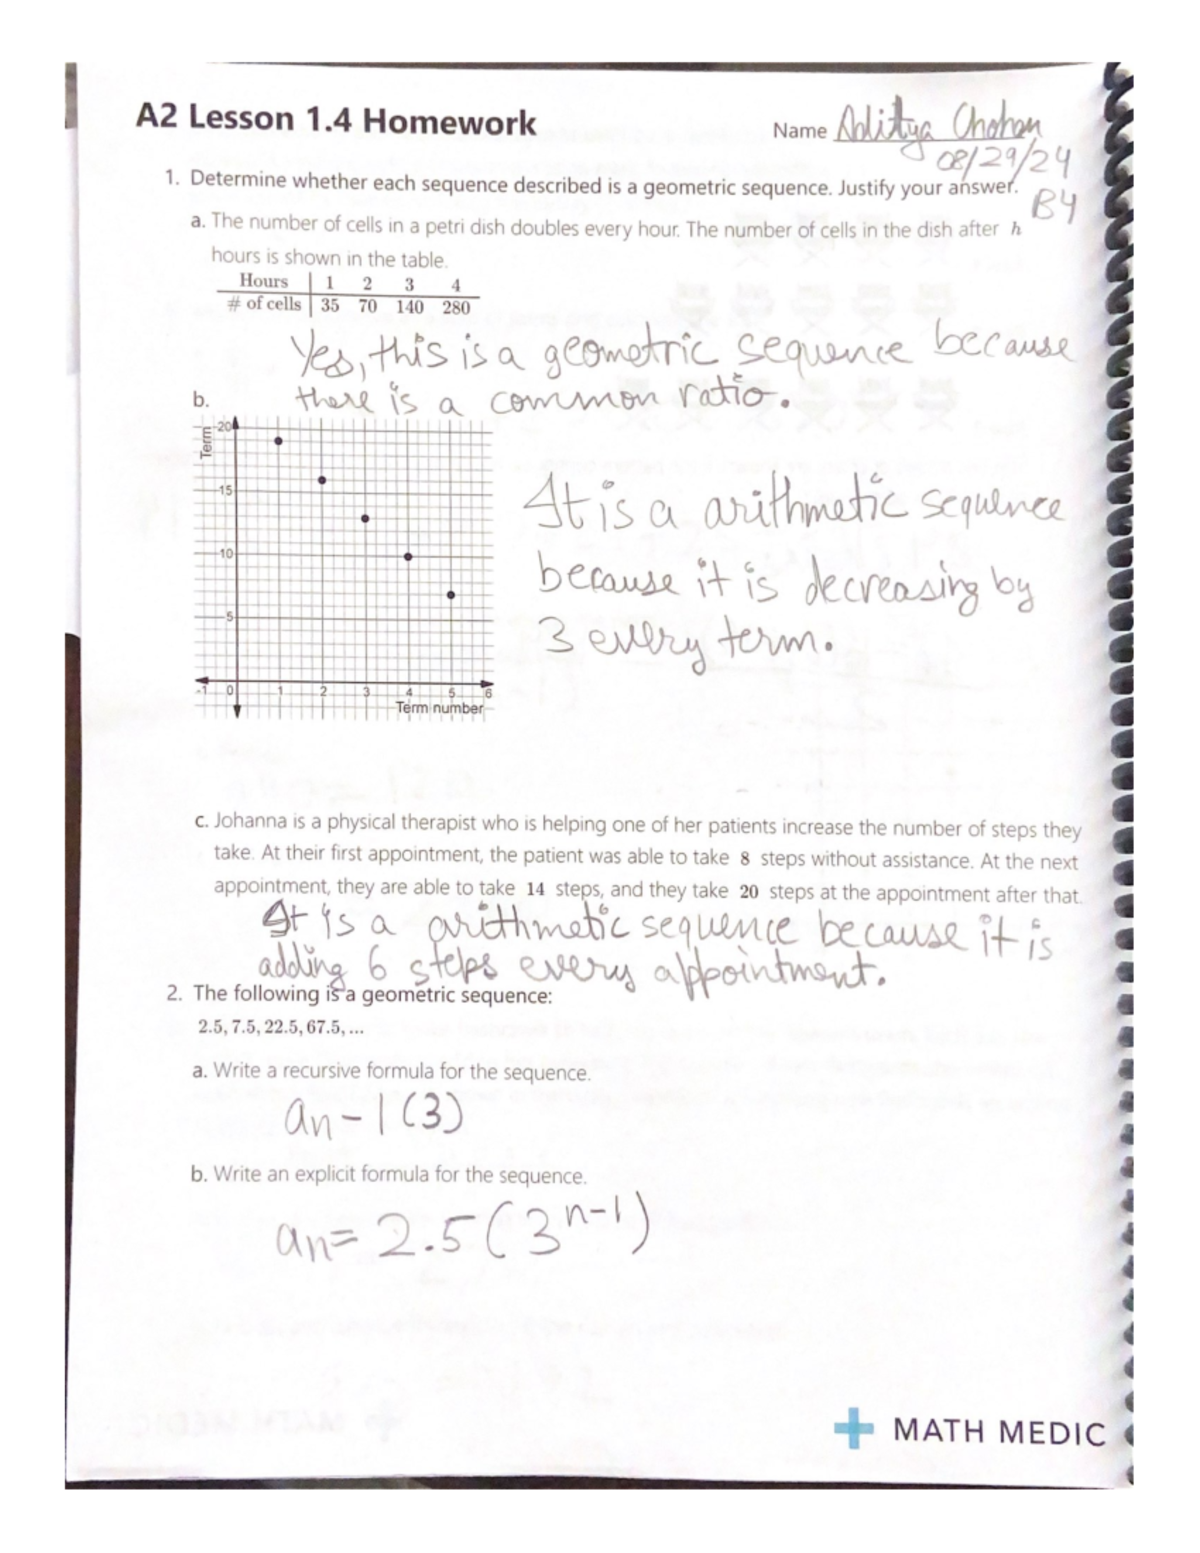 A2 Lesson 1.4 Homework
Name Aditya Chohan
08/29/24
B4
1. Determine whether each sequence described is a geometric sequence. Justify your answer.
a. The number of cells in a petri dish doubles every hour. The number of cells in the dish after h
hours is shown in the table.
Hours 1 2 3 4
# of cells 35 70 140 280
Yes, this is a geometric sequence because
there is a common ratio.
b.
Term
20
15
10
5
-1 0 1 2 3 4 5 6
Term number
It is a arithmetic sequence
because it is decreasing by
3 every term.
c. Johanna is a physical therapist who is helping one of her patients increase the number of steps they
take. At their first appointment, the patient was able to take 8 steps without assistance. At the next
appointment, they are able to take 14 steps, and they take 20 steps at the appointment after that.
It is a arithmetic sequence because it is
adding 6 steps every appointment.
2. The following is a geometric sequence:
2.5, 7.5, 22.5, 67.5, ...
a. Write a recursive formula for the sequence.
an-1(3)
b. Write an explicit formula for the sequence.
an=2.5(3^n-1)
MATH MEDIC